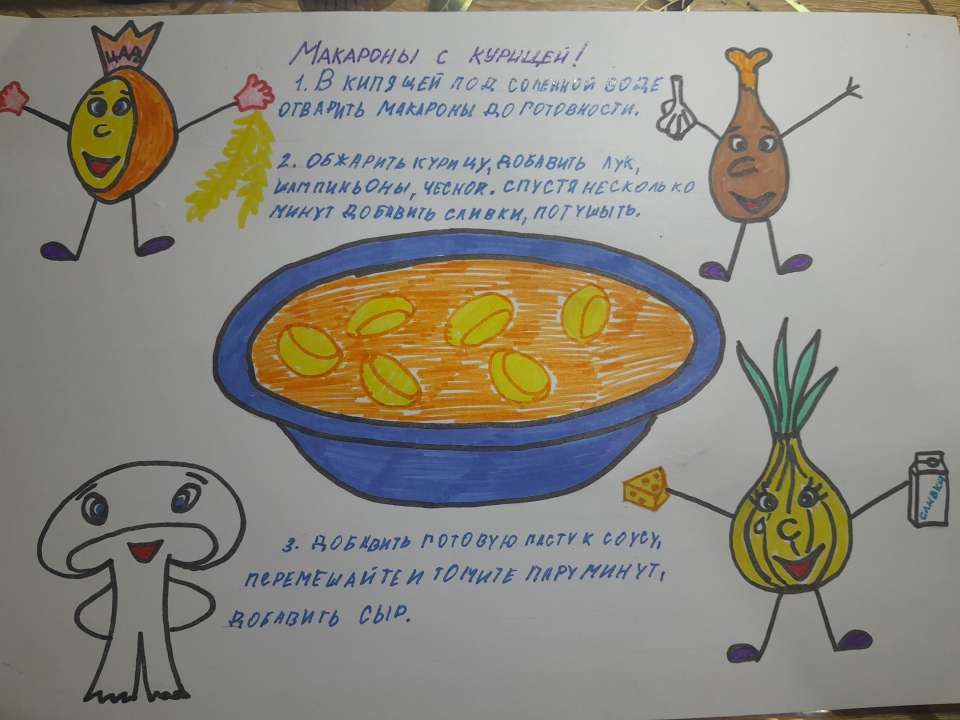 ЦАР
МАКАРОНЫ С КУРИЦЕЙ!
1. В КИПЯЩЕЙ ПОД СОЛЕННОЙ ВОДЕ
ОТВАРИТЬ МАКАРОНЫ ДО ГОТОВНОСТИ.
2. ОБЖАРИТЬ КУРИЦУ, ДОБАВИТЬ ЛУК,
ШАМПИНЬОНЫ, ЧЕСНОК. СПУСТЯ НЕСКОЛЬКО
МИНУТ ДОБАВИТЬ СЛИВКИ, ПОТУШЫТЬ.
СЛИВКИ
3. ДОБАВИТЬ ГОТОВУЮ ПАСТУ К СОУСУ,
ПЕРЕМЕШАЙТЕ И ТОМИТЕ ПАРУ МИНУТ,
ДОБАВИТЬ СЫР.